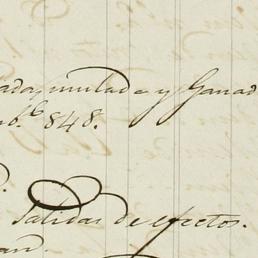 ada, mulada y Ganad
bᵉ 848.
Salidas de efectos.
an.